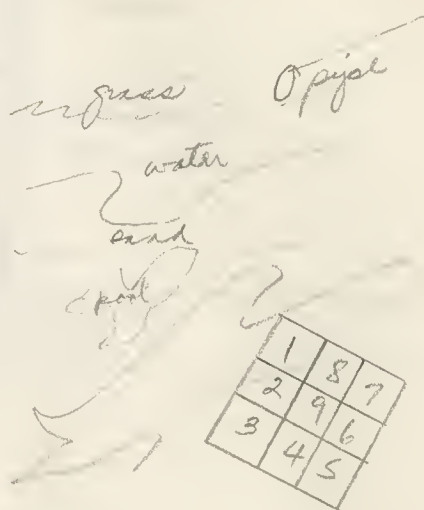 grass
pipe
water
sand
pool
1 8 7
2 9 6
3 4 5